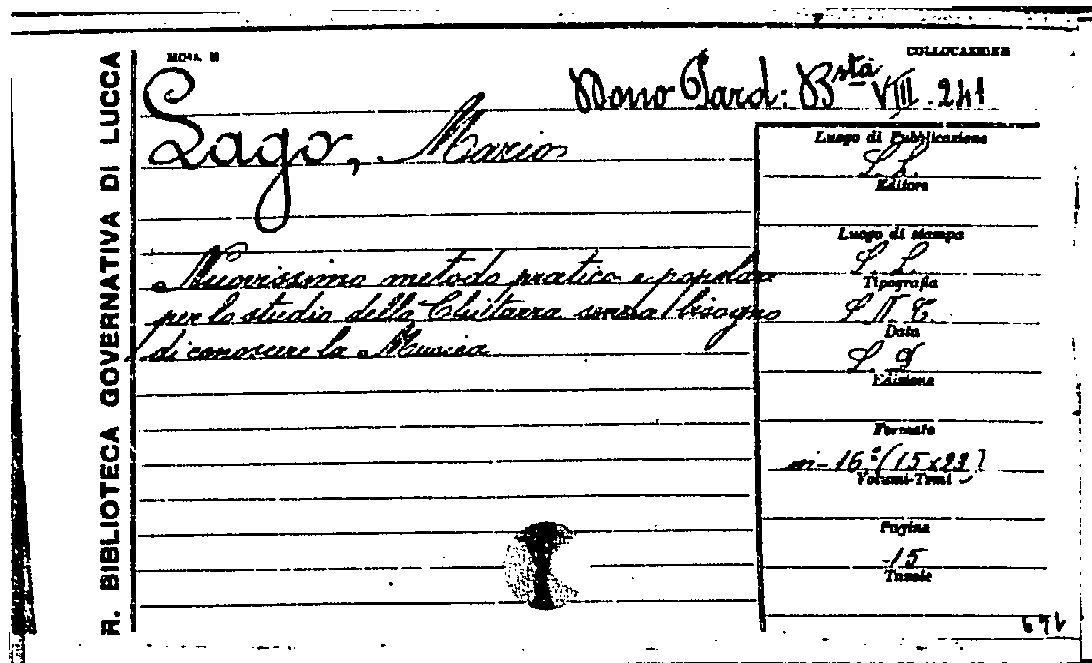 R. BIBLIOTECA GOVERNATIVA DI LUCCA
COLLOCAZIONE
Dono Pard: Bsta VIII. 241
Lago, Mario
Nuovissimo metodo pratico e popolare
per lo studio della Chittarra senza bisogno
di conoscere la Musica
Luogo di Pubblicazione
S. L.
Editore
Luogo di stampa
S. L.
Tipografia
S. N. T.
Data
S. D
Edizione
Formato
in-16º (15x22)
Volumi-Tomi
Pagine
15
Tavole